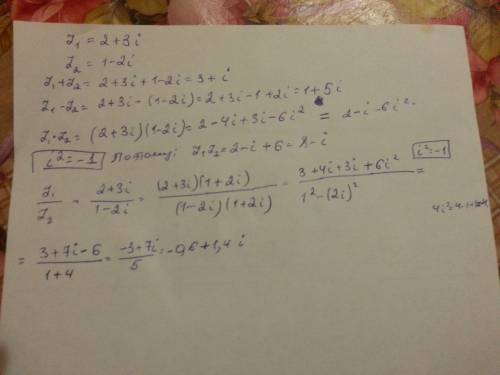 z₁ = 2+3i
z₂ = 1-2i
z₁+z₂ = 2+3i+1-2i = 3+i
z₁-z₂ = 2+3i-(1-2i) = 2+3i-1+2i = 1+5i
z₁·z₂ = (2+3i)(1-2i) = 2-4i+3i-6i² = 2-i-6i².
i²=-1 z₁z₂ = 2-i+6 = 8-i i²=-1
z₁/z₂ = (2+3i)/(1-2i) = (2+3i)(1+2i)/(1-2i)(1+2i) = (3+4i+3i+6i²)/(1²-(2i)²) =
= (3+7i-6)/(1+4) = (-3+7i)/5 = -0,6+1,4i